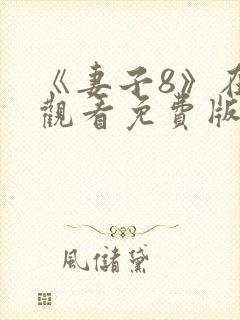 《妻子8》在
觀看免費版
風儲黛